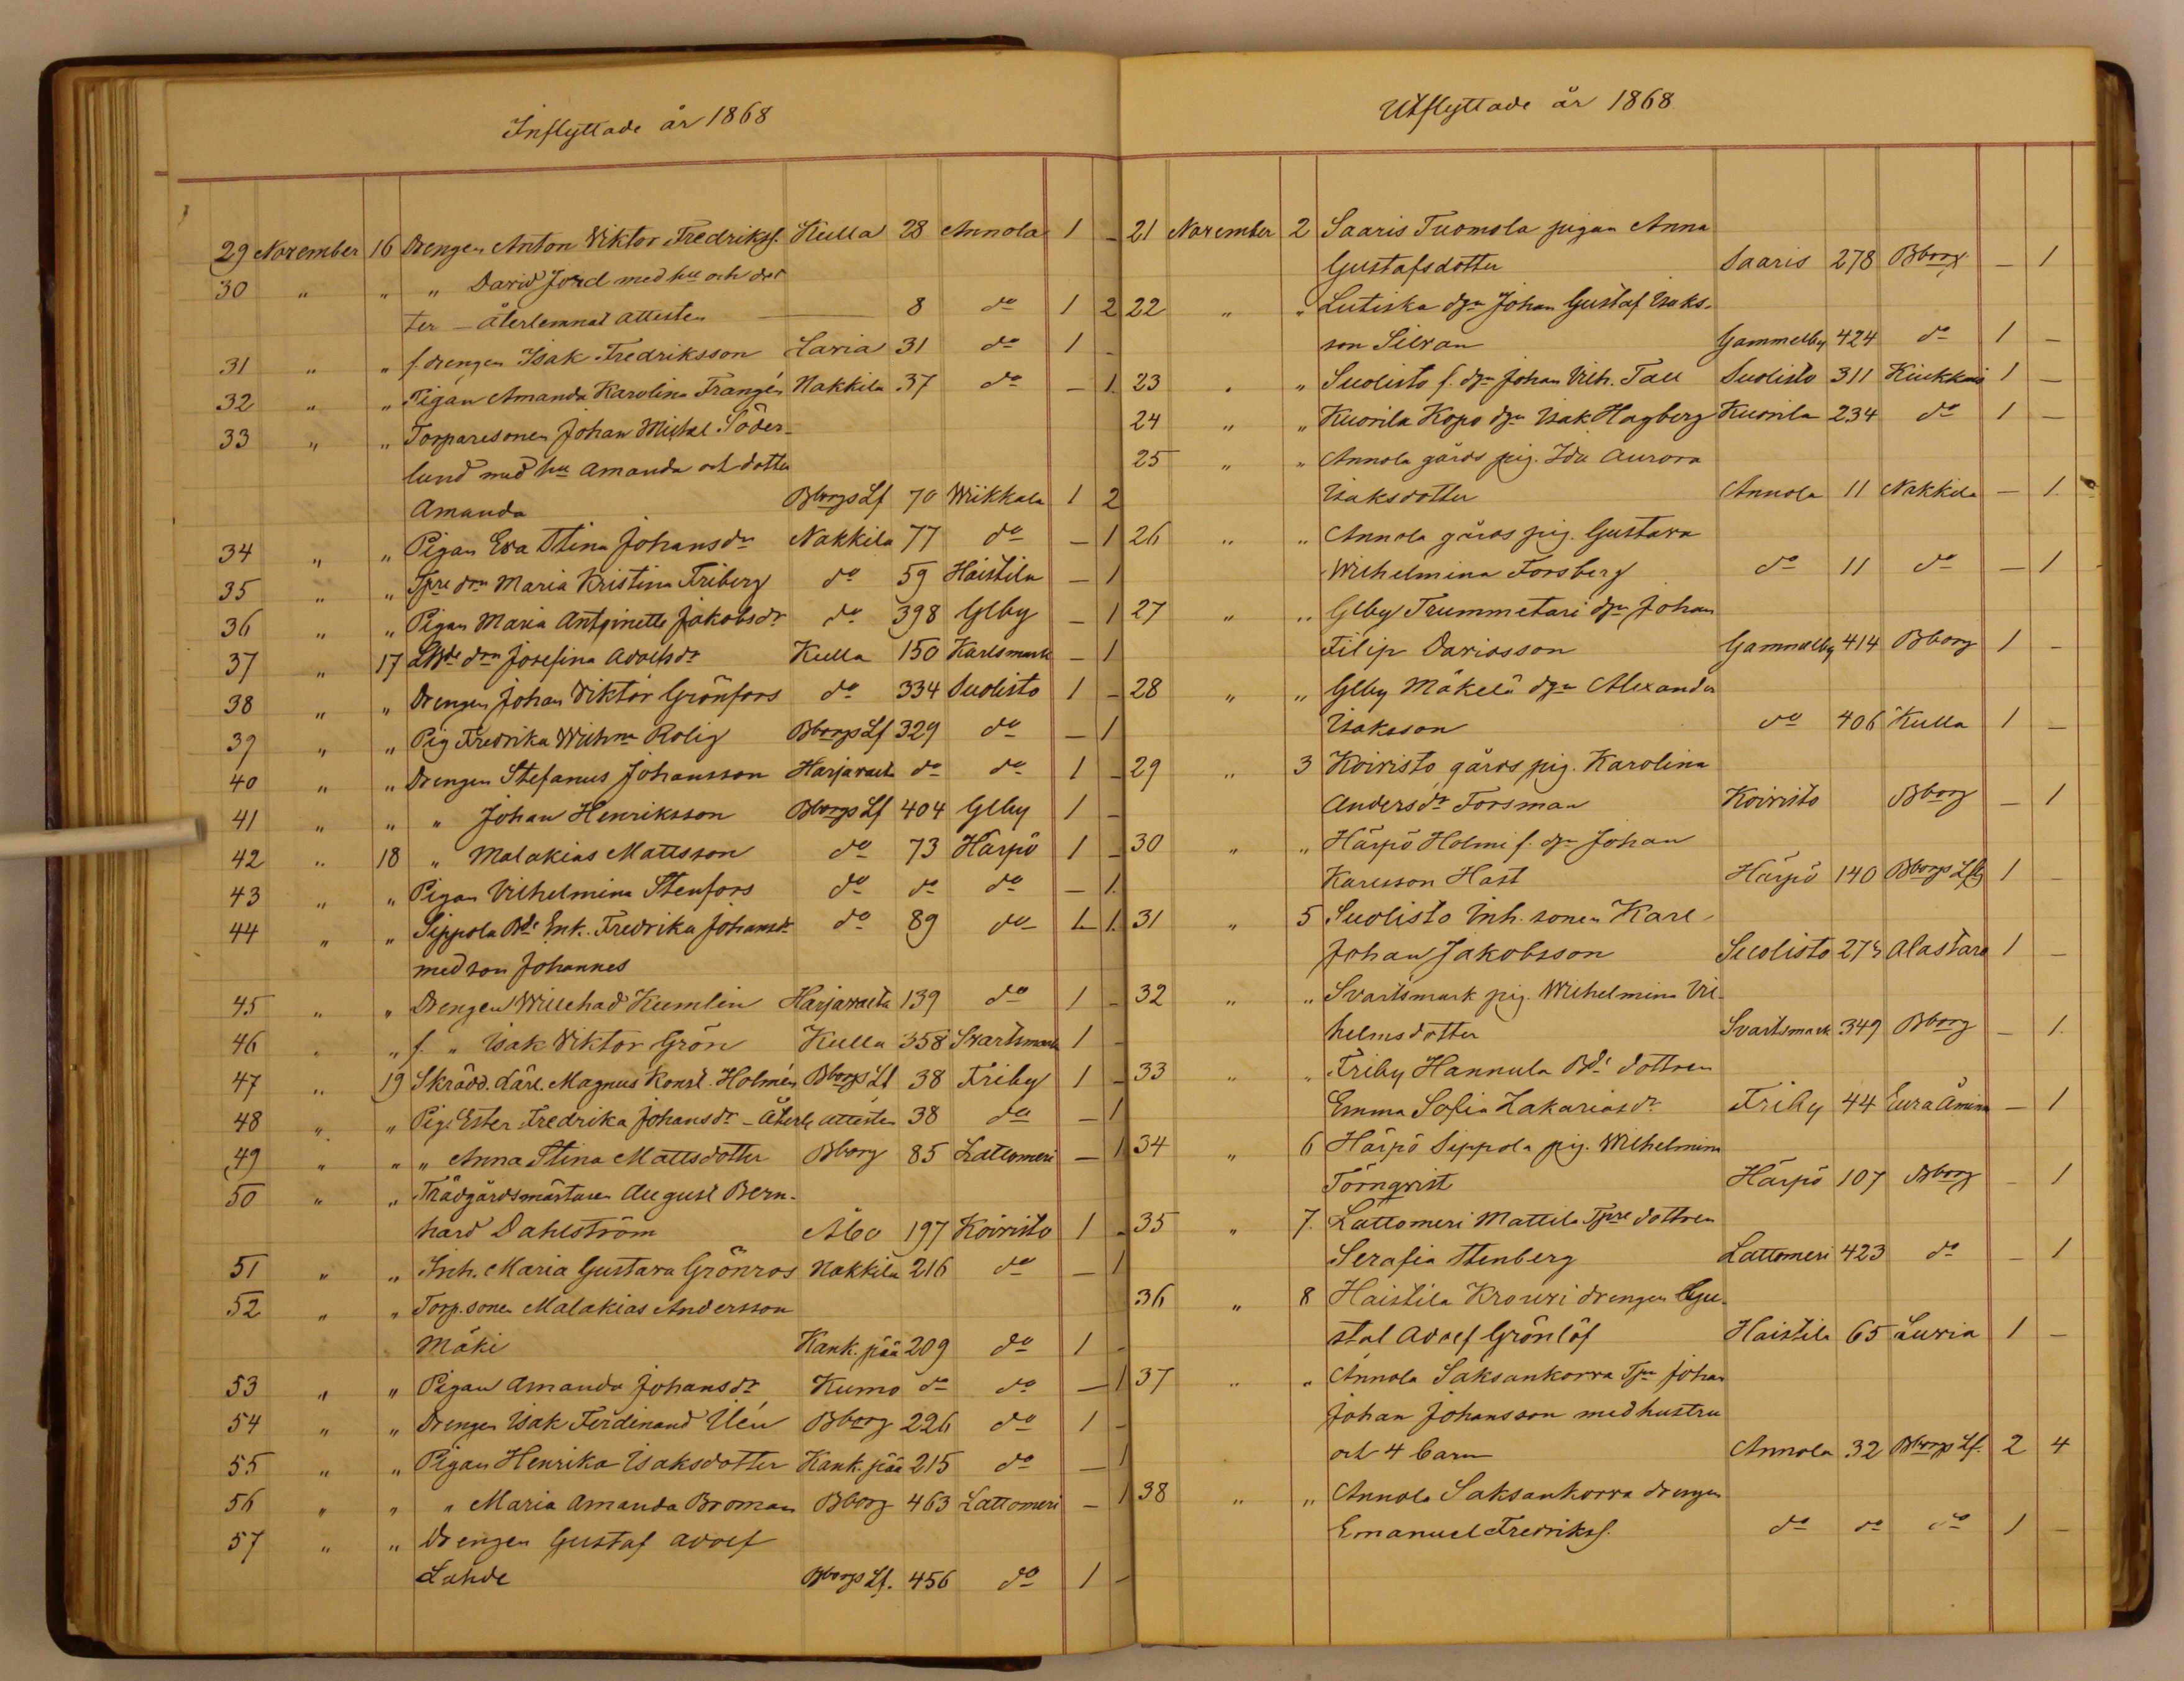 Inflyttade år 1868
29 November 16 Drengen Anton Viktor Fredrikss. Kulla 28 Annola 1 –
30 „ „ „ David Jord med hu och dot
ter – återlemnat attesten — 8 do 1 2
31 „ „ f. drengen Isak Fredriksson Lavia 31 do 1 –
32 „ „ Pigan Amanda Karolina Frangén Nakkila 37 do – 1
33 „ „ Torparesonen Johan Mickel Söder-
lund med hu Amanda och dotter
Amanda Bborgs Lf 70 Wiikkala 1 2
34 „ „ Pigan Eva Stina Johansdr Nakkila 77 do – 1
35 „ „ Tpre dtrn Maria Kristina Friberg do 59 Haistila – 1
36 „ „ Pigan Maria Antoinette Jakobsdr do 398 Glby – 1
37 „ 17 dtrn Josefina Adolfsdr Kulla 150 Karlsmark – 1
38 „ „ Drengen Johan Viktor Grönfors do 334 Suolisto 1 –
39 „ „ Pig Fredrika Wilhma Rolig Bborgs Lf 329 do – 1
40 „ „ Drengen Stefanus Johansson Harjavalta do do 1 –
41 „ „ „ Johan Henriksson Bborgs Lf 404 Glby 1 –
42 „ 18 „ Malakias Mattsson do 73 Härpö 1 –
43 „ „ Pigan Vilhelmina Stenfors do do do – 1
44 „ „ Sippola Bde Enk. Fredrika Johansdr do 89 do 1 1
med son Johannes
45 „ „ Drengen Willehad Kumlin Harjavalta 139 do 1 –
46 „ „ f. „ Isak Viktor Grön Kulla 358 Svartsmark 1 –
47 „ 19 Skrädd. lärl. Magnus Konst. Holmén Bborgs Lf 38 Friby 1 –
48 „ „ Pig. Ester Fredrika Johansdr – Återl. attesten 38 do – 1
49 „ „ „ Anna Stina Mattsdotter Bborg 85 Lattomeri – 1
50 „ „ Trädgårdsmästaren August Bern-
hard Dahlström Åbo 197 Koivisto 1 –
51 „ „ Inh. Maria Gustava Grönros Nakkila 216 do – 1
52 „ „ Torp. sonen Malakias Andersson
Mäki Kank. pää 209 do 1 –
53 „ „ Pigan Amanda Johansdr Kumo do do – 1
54 „ „ Drengen Isak Ferdinand Ilén Bborg 226 do 1 –
55 „ „ Pigan Henrika Isaksdotter Kank. pää 215 do – 1
56 „ „ „ Maria Amanda Broman Bborg 463 Lattomeri – 1
57 „ „ Drengen Gustaf Adolf
Lahde Bborgs Lf. 456 do 1 –
Utflyttade år 1868
21 November 2 Saaris Tuomola pigan Anna
Gustafsdotter Saaris 278 Bborg – 1
22 „ „ Lutiska dgn Johan Gustaf Isaks-
son Silvan Gammelby 424 do 1 –
23 „ „ Suolisto f. dgn Johan Vilh. Tall Suolisto 311 Kiukkais 1 –
24 „ „ Kuorila Kopo dgn Isak Hagberg Kuorila 234 do 1 –
25 „ „ Annola gårds pig. Ida Aurora
Isaksdotter Annola 11 Nakkila – 1
26 „ „ Annola gårds pig. Gustava
Wilhelmina Forsberg do 11 do – 1
27 „ „ Glby Trummetari dgn Johan
Filip Davidsson Gammelby 414 Bborg 1 –
28 „ „ Glby Mäkelä dgn Alexander
Isaksson do 406 Kulla 1 –
29 „ 3 Koivisto gårds pig. Karolina
Andersdr Forsman Koivisto Bborg – 1
30 „ „ Härpö Holmi f. dgn Johan
Karlsson Hast Härpö 140 Bborgs Lfg 1 –
31 „ 5 Suolisto Inh. sonen Karl
Johan Jakobsson Suolisto 275 Alastaro 1 –
32 „ „ Svartsmark pig. Wilhelmina Vil-
helmsdotter Svartsmark 349 Bborg – 1
33 „ „ Friby Hannula Bde dottren
Emma Sofia Zakariasdr Friby 44 Eura Åminn – 1
34 „ 6 Härpö Sippola pig. Wilhelmina
Törnqvist Härpö 107 Bborg – 1
35 „ 7 Lattomeri Mattila Tpre dottren
Serafia Stenberg Lattomeri 423 do – 1
36 „ 8 Haistila Krouvi drengen Gu-
staf Adolf Grönlöf Haistila 65 Luvia 1 –
37 „ „ Annola Saksankorva Tpn Johan
Johan Johansson med hustru
och 4 barn Annola 32 Bborgs Lf. 2 4
38 „ „ Annola Saksankorva drengen
Emanuel Fredrikss. do do do 1 –